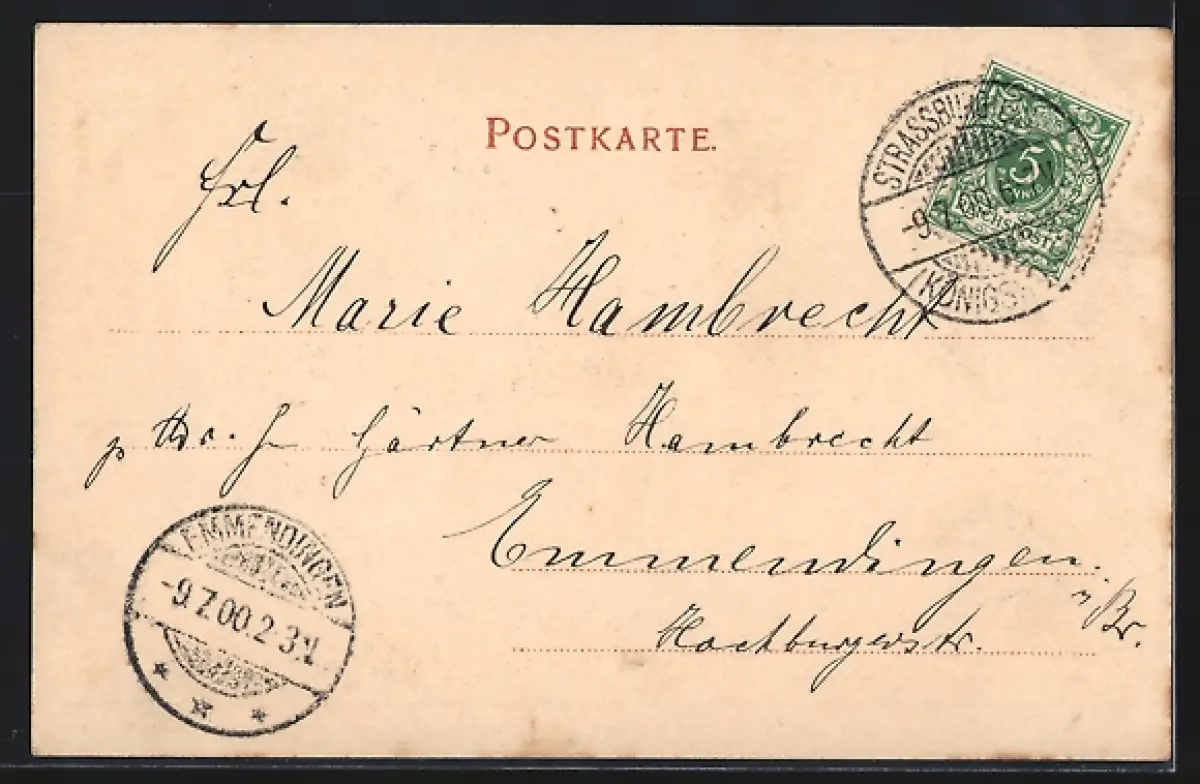 POSTKARTE.
STRASSBURG
-9.7.00.
(KÖNIGSH
5
PFENNIG
REICHSPOST
Frl.
Marie Hambrecht
Gärtner Hambrecht
Emmendingen.
i/Br.
Hochburgerstr.
EMMENDINGEN
-9.7.00.2-3N.